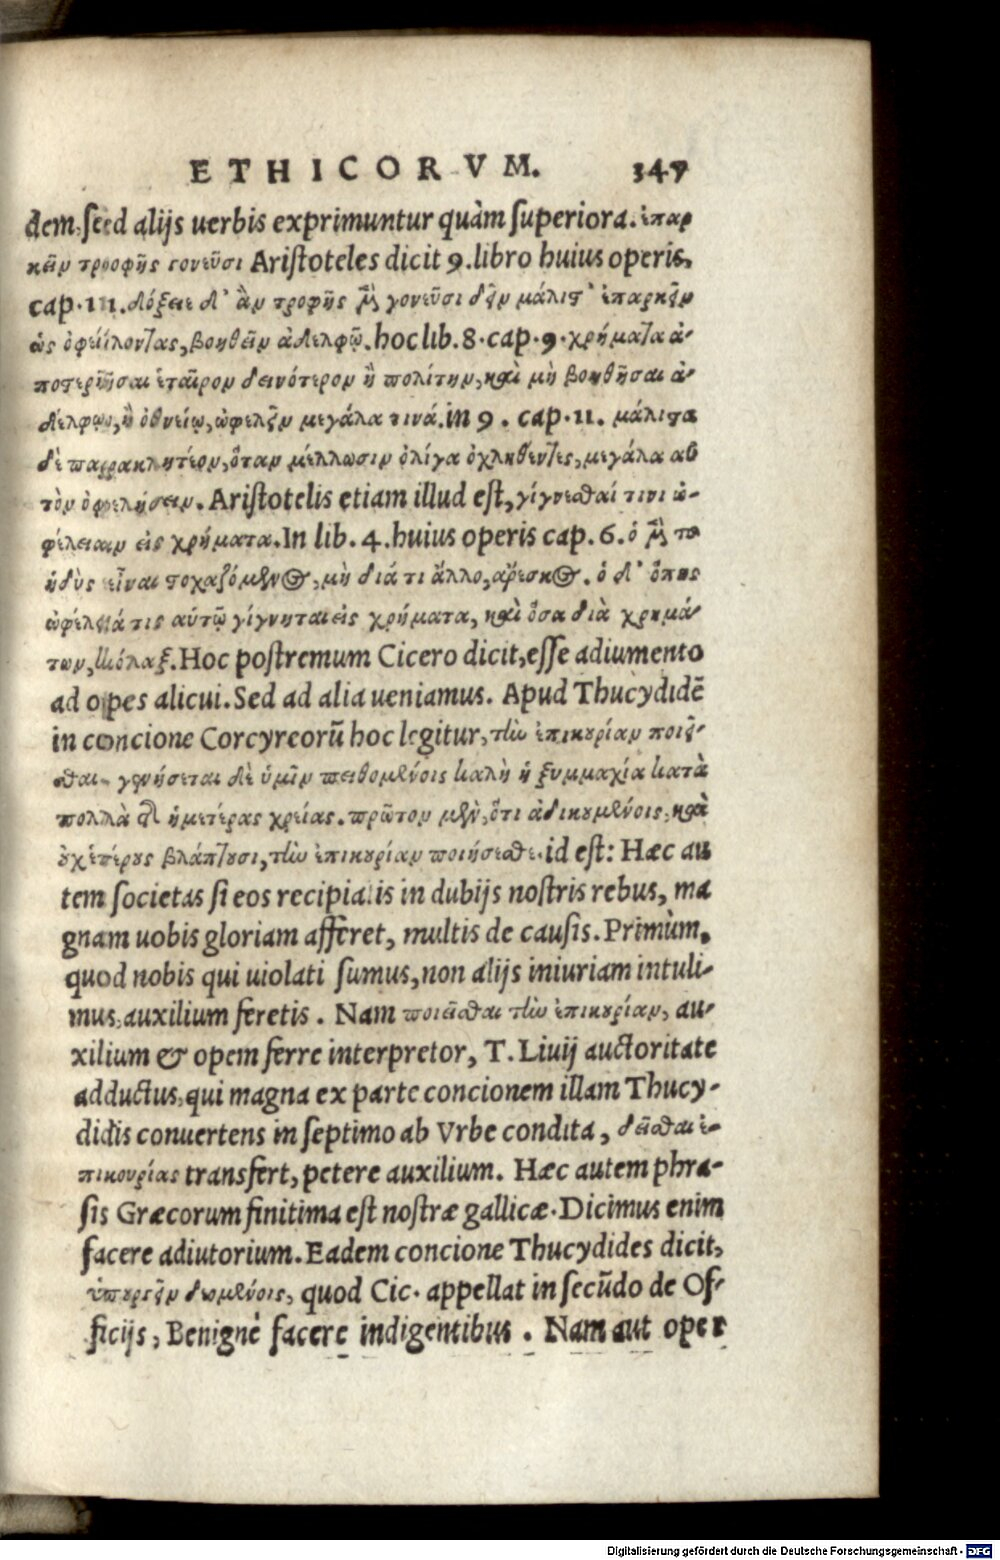 ETHICORVM. 347
dem, sed alijs uerbis exprimuntur quàm superiora. ἐπαρ
κεῖν τροφῆς γονεῦσι Aristoteles dicit 9. libro huius operis,
cap. III. δόξειε δ' ἂν τροφῆς μὲν γονεῦσι δεῖν μάλιστ' ἐπαρκεῖν
ὡς ὀφείλοντας, βοηθεῖν ἀδελφῷ. hoc lib. 8. cap. 9. χρήματα ἀ-
ποστερῆσαι ἑταῖρον δεινότερον ἢ πολίτην, καὶ μὴ βοηθῆσαι ἀ-
δελφῷ, ἢ ὀθνείῳ, ὠφελεῖν μεγάλα τινά. in 9. cap. 11. μάλιστα
δὲ παρακλητέον, ὅταν μέλλωσιν ὀλίγα ὀχληθέντες, μεγάλα αὐ
τὸν ὀφελήσειν. Aristotelis etiam illud est, γίγνεσθαί τινι ὠ-
φέλειαν εἰς χρήματα. In lib. 4. huius operis cap. 6. ὁ μὲν το
ἡδὺς εἶναι στοχαζόμενος, μὴ διά τι ἄλλο, ἄρεσκος. ὁ δ' ὅπως
ὠφέλειά τις αὐτῷ γίγνηται εἰς χρήματα, καὶ ὅσα διὰ χρημά-
των, κόλαξ. Hoc postremum Cicero dicit, esse adiumento
ad opes alicui. Sed ad alia ueniamus. Apud Thucydidē
in concione Corcyreorū hoc legitur, τὴν ἐπικουρίαν ποιεῖ-
σθαι. γενήσεται δὲ ὑμῖν πειθομένοις καλὴ ἡ ξυμμαχία κατὰ
πολλὰ τῆς ἡμετέρας χρείας. πρῶτον μὲν, ὅτι ἀδικουμένοις, καὶ
οὐχ ἑτέρους βλάπτουσι, τὴν ἐπικουρίαν ποιήσεσθε. id est: Hæc au
tem societas si eos recipiatis in dubijs nostris rebus, ma
gnam uobis gloriam afferet, multis de causis. Primùm,
quod nobis qui uiolati sumus, non alijs iniuriam intuli-
mus, auxilium feretis. Nam ποιεῖσθαι τὴν ἐπικουρίαν, au-
xilium & opem ferre interpretor, T. Liuij auctoritate
adductus, qui magna ex parte concionem illam Thucy-
didis conuertens in septimo ab Vrbe condita, δεῖσθαι ἐ-
πικουρίας transfert, petere auxilium. Hæc autem phra-
sis Græcorum finitima est nostræ gallicæ. Dicimus enim
facere adiutorium. Eadem concione Thucydides dicit,
ὑπουργεῖν δεομένοις, quod Cic. appellat in secūdo de Of-
ficijs, Benignè facere indigentibus. Nam aut oper
Digitalisierung gefördert durch die Deutsche Forschungsgemeinschaft - DFG